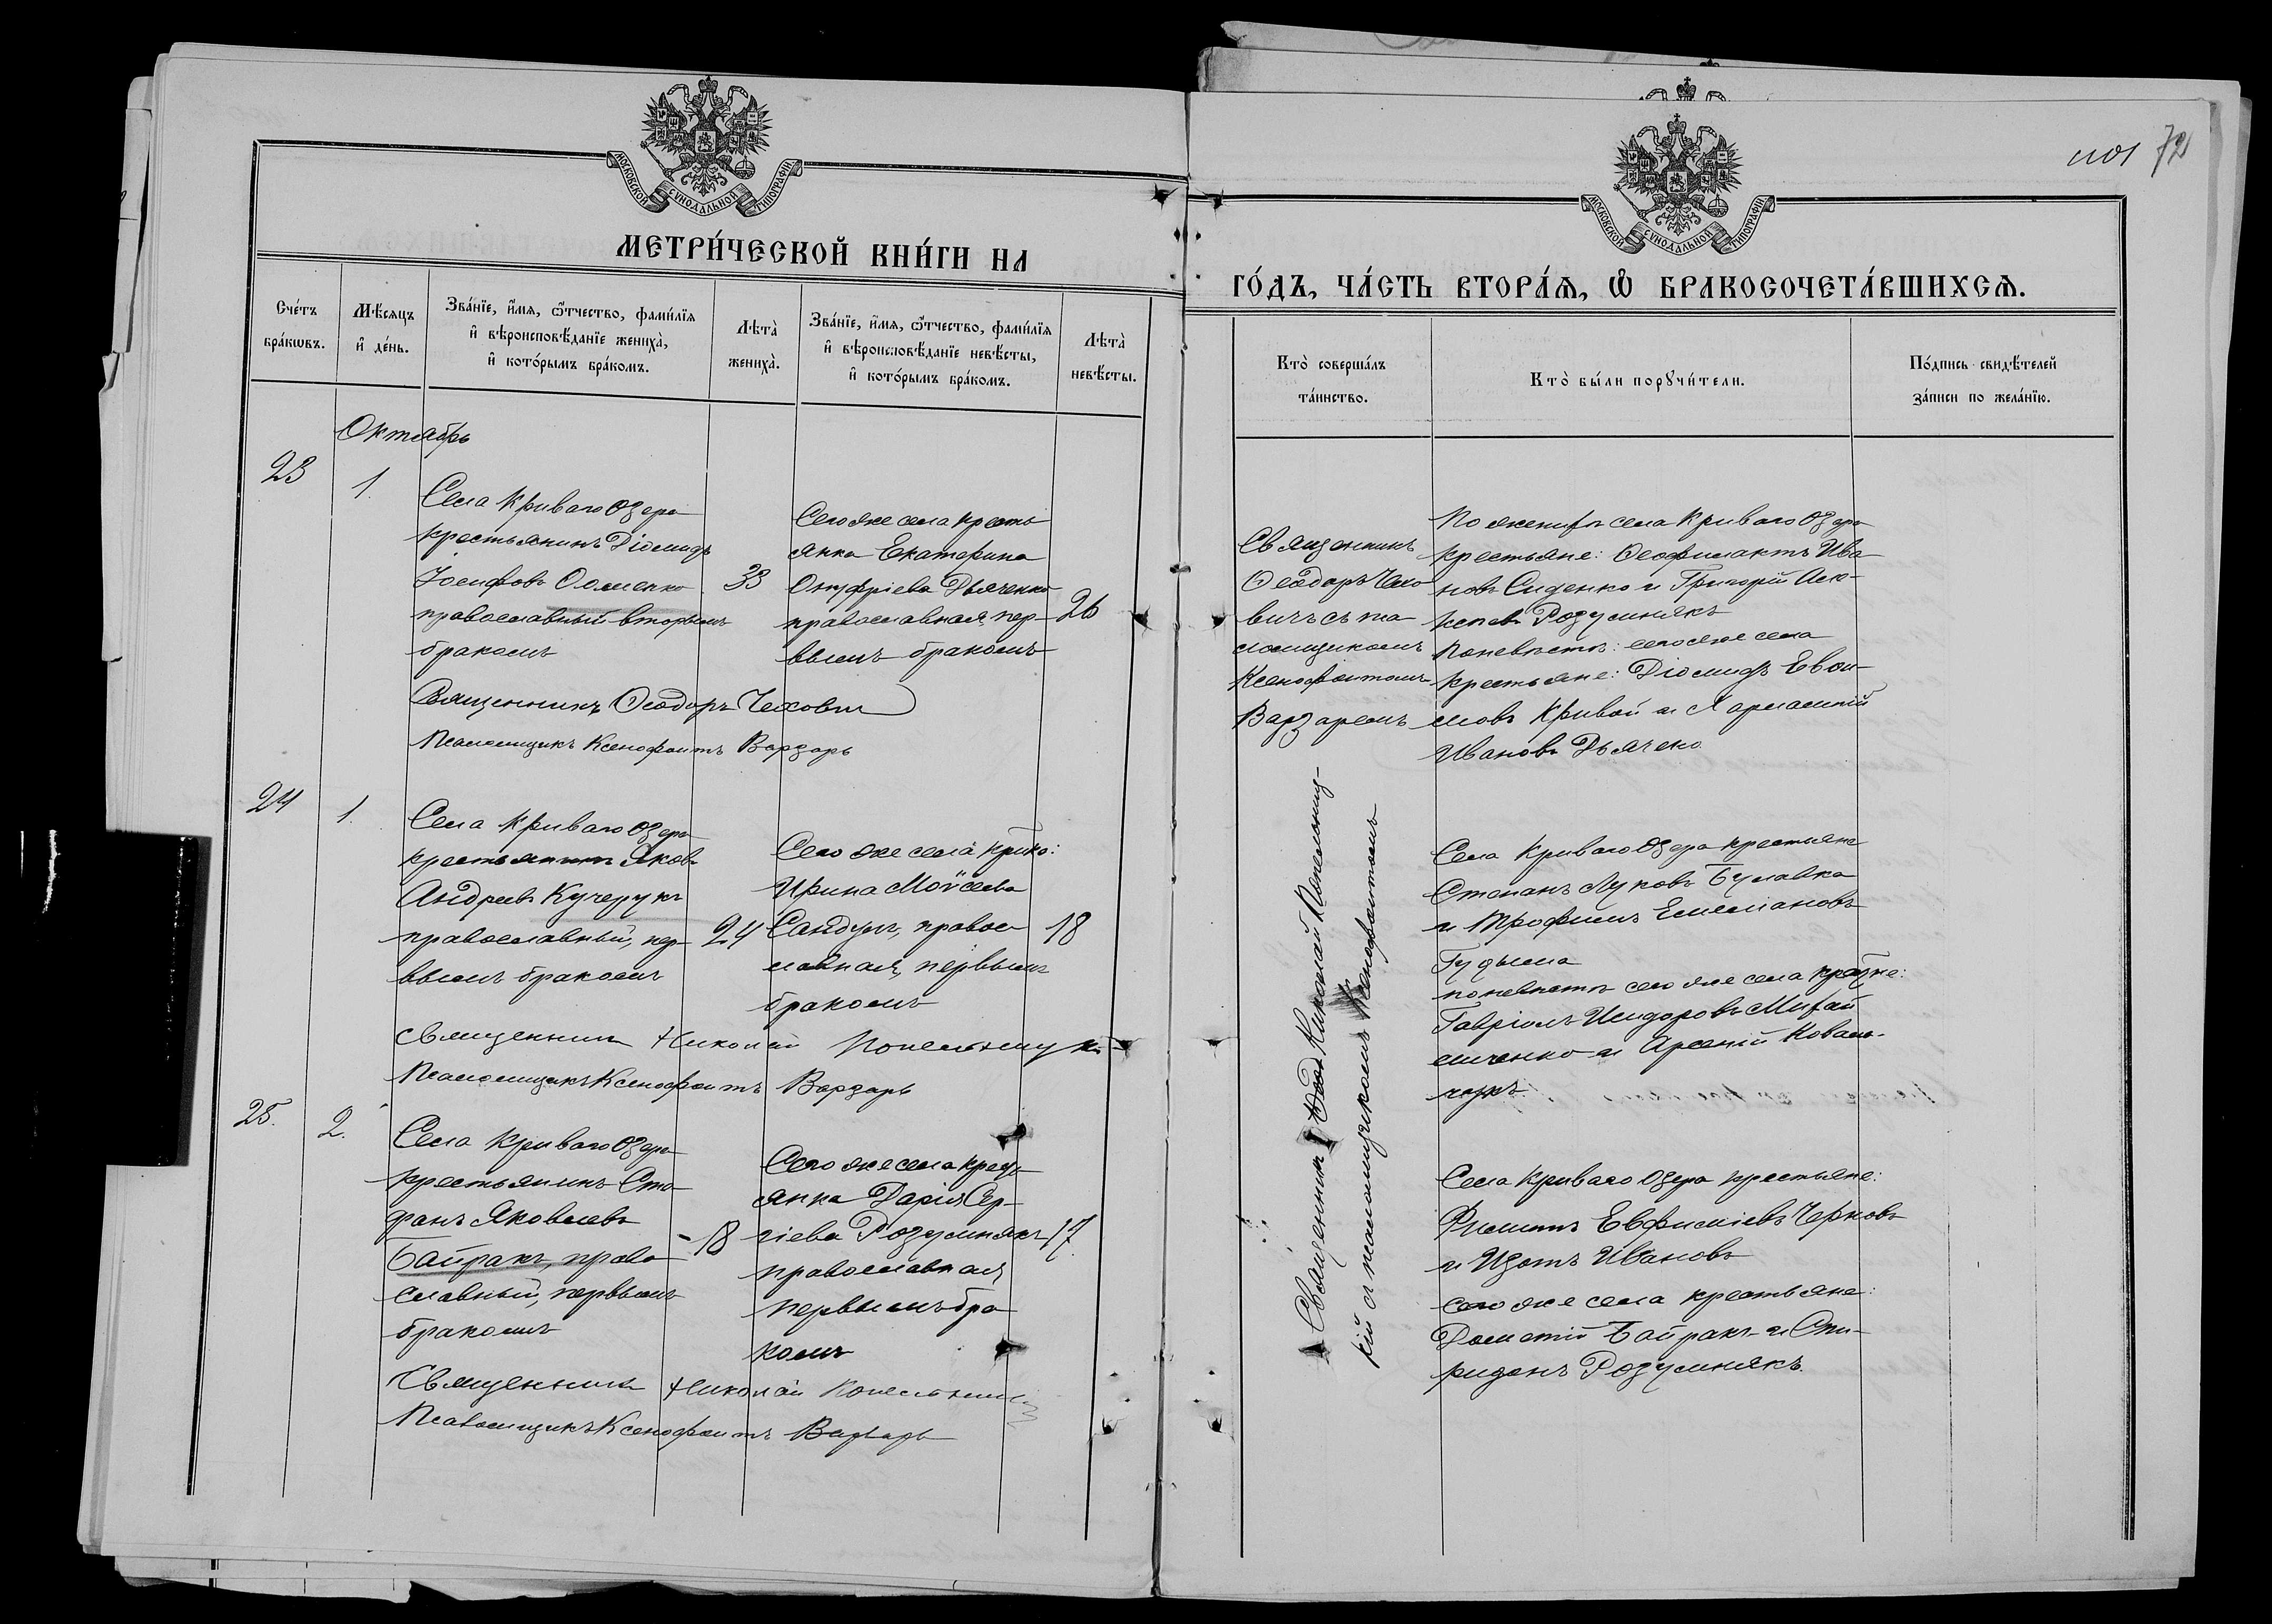 МОСКОВСКОЙ СѴНОДАЛЬНОЙ ТИПОГРАФІИ
МЕТРИ́ЧЕСКОЙ КНИ́ГИ НА
Сче́тъ бра́кωвъ.
Мѣ́сяцъ и҆ де́нь.
Зва́нїе, и҆́мя, ѻ҆́тчество, фами́лїя
и҆ вѣроисповѣ́данїе жениха̀,
и҆ кото́рымъ бра́комъ.
Лѣта̀ жениха̀.
Зва́нїе, и҆́мя, ѻ҆́тчество, фами́лїя
и҆ вѣроисповѣ́данїе невѣ́сты,
и҆ кото́рымъ бра́комъ.
Лѣта̀ невѣ́сты.
Октябрь
23
1.
Села Криваго Озера
крестьянинъ Діомидъ
Іосифовъ
православный вторымъ
бракомъ
33
Того же села кресть
янка Екатерина
Онуфріева Дьяченко
православная, пер-
вымъ бракомъ
26
Священникъ Ѳеодоръ Чехович
Псаломщикъ Ксенофонтъ Варзарь
24
1.
Села Криваго Озера
крестьянинъ Яковъ
Андреевъ Кучерукъ
православный, пер-
вымъ бракомъ
24
Того же села
Ирина Моѵсеева
Сандулъ, правос
лавная, первымъ
бракомъ
18
Священник Николай
Псаломщикъ Ксенофонтъ Варзарь
25.
2.
Села Криваго Озера
крестьянинъ Сте
фанъ Яковлевъ
Байракъ, право
славный, первымъ
бракомъ
18
Того же села крест
янка Дарія Сер-
гіева Розумнякъ
православная
первымъ бра
комъ
17.
Священник Николай
Псаломщикъ Ксенофонтъ Варзарь
72
МОСКОВСКОЙ СѴНОДАЛЬНОЙ ТИПОГРАФІИ
ГО́ДЪ, ЧА́СТЬ ВТОРА́Я, Ѡ БРАКОСОЧЕТА́ВШИХСЯ.
Кто̀ соверша́лъ
та́инство.
Кто̀ бы́ли порꙋчи́тели.
По́дпись свидѣ́телей
за́писи по жела́нїю.
Священникъ
Ѳеодоръ Чехо
вичъ съ пса
ломщикомъ
Ксенофонтомъ
Варзаремъ
По женихѣ села Криваго Озера
крестьяне: Ѳеофилактъ Ива
новъ Сиденко и Григорій Але-
Розумнякъ
По невѣстѣ: того же села
крестьяне: Діомидъ
Кривой и Харлампій
Ивановъ Дьяченко
Священник Николай
кій съ псаломщикомъ Ксенофонтомъ
Села Криваго Озера крестьяне
Степанъ Луковъ Булавка
и Трофимъ Емеліановъ
Гудыма
по невѣстѣ того же села
Гавріилъ Исидоровъ Михай
личенко и Арсеній Коваль-
чукъ
Села Криваго Озера крестьяне:
Филиппъ Евфиміевъ Черновъ
и Изотъ Ивановъ
того же села крестьяне:
Дометій Байракъ и Спи-
ридонъ Розумнякъ.